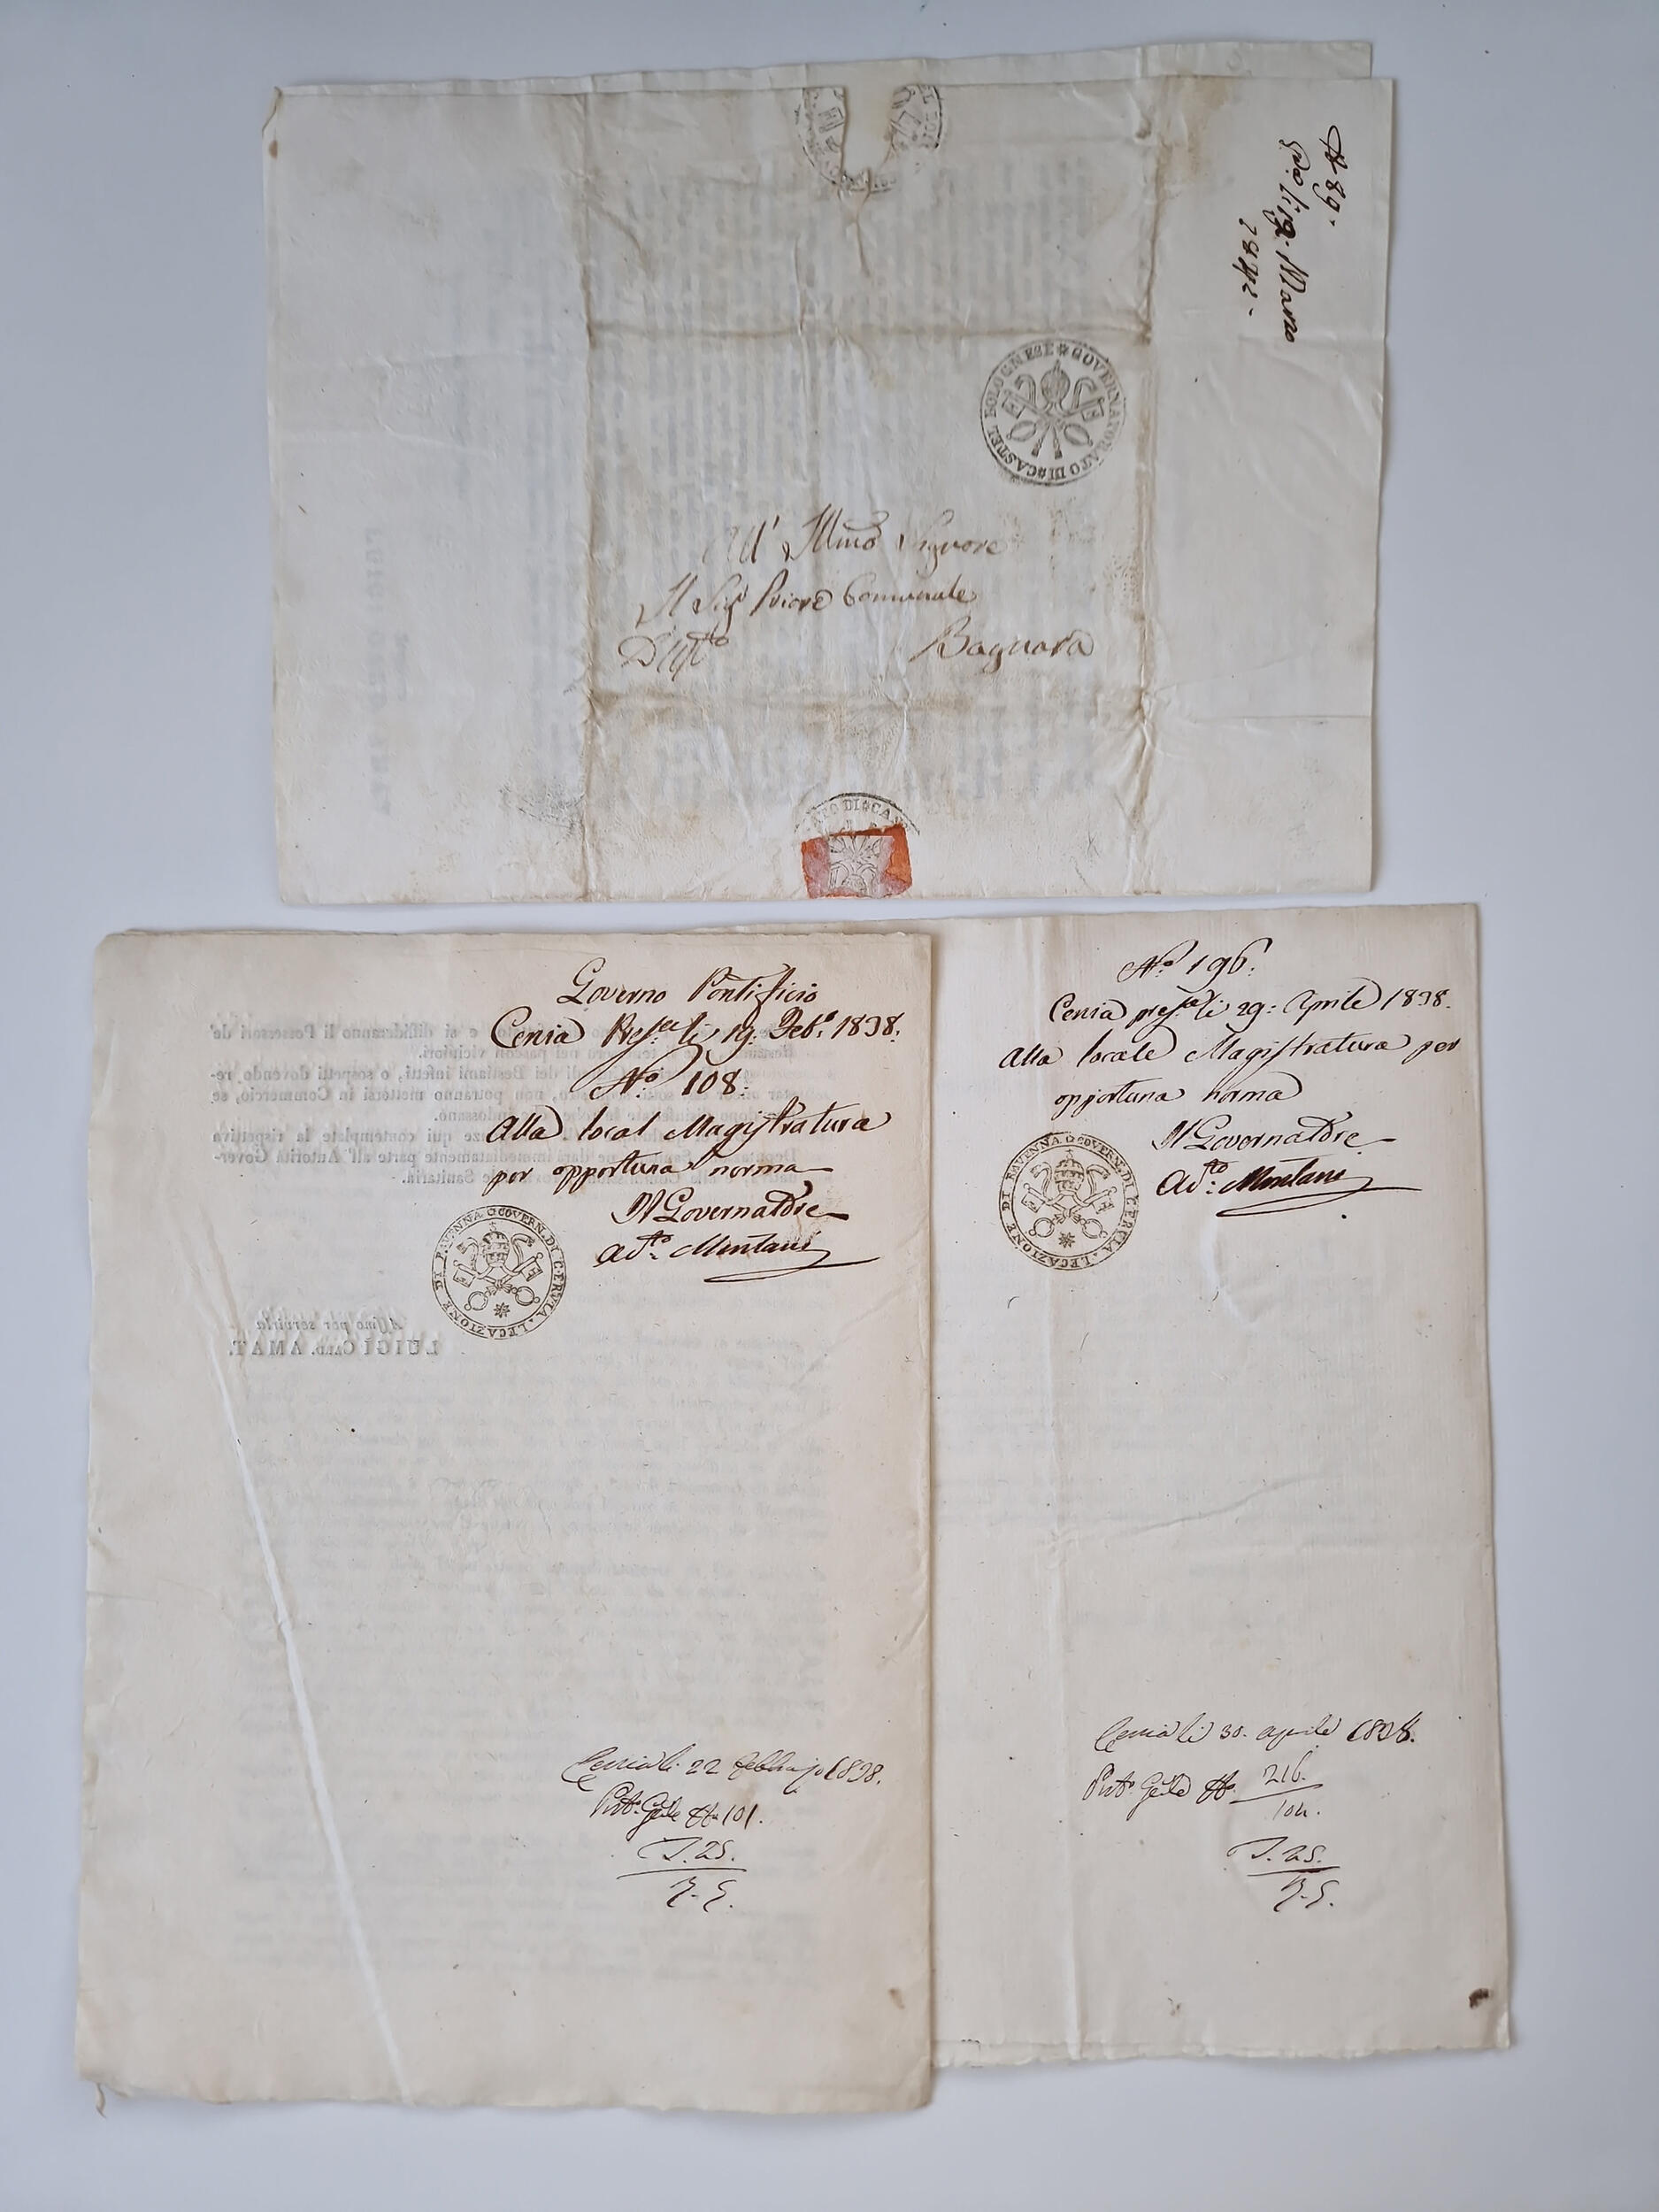 № 89.
Marzo
1842.
CASTEL BOLOGNESE ☆ GOVERNATORATO DI
All' Illmo Signore
Il Sigr Priore Comunale
Bagnara
ATO DI CAS
Governo Pontificio
Cervia Presta li 19. Feb.o 1838.
No. 108.
Alla local Magistratura
per opportuna norma
Il Governatore
Ad.to Montani
LEGAZIONE DI RAVENNA GOVERN. DI CERVIA
e si diffideranno li Possessori de'
nei pascoli viciniori.
dei Bestiami infetti, o sospetti dovendo re-
non potranno mettersi in Commercio, se
qui contemplate la rispettiva
darà immediatamente parte all' Autorità Gover-
Sanitaria.
Affmo per servirla
LUIGI CARD. AMAT.
Cervia li 22 febbrajo 1838.
Prot. Gēnle No 101.
T. 25.
R. 5.
No. 196.
Cervia presta li 29. Aprile 1838.
Alla locale Magistratura per
opportuna norma
Il Governatore
Ad.to Montani
LEGAZIONE DI RAVENNA GOVERN. DI CERVIA
Cervia li 30. aprile 1838.
Prot. Gēnle No. 216.
104.
T. 25.
R. 5.